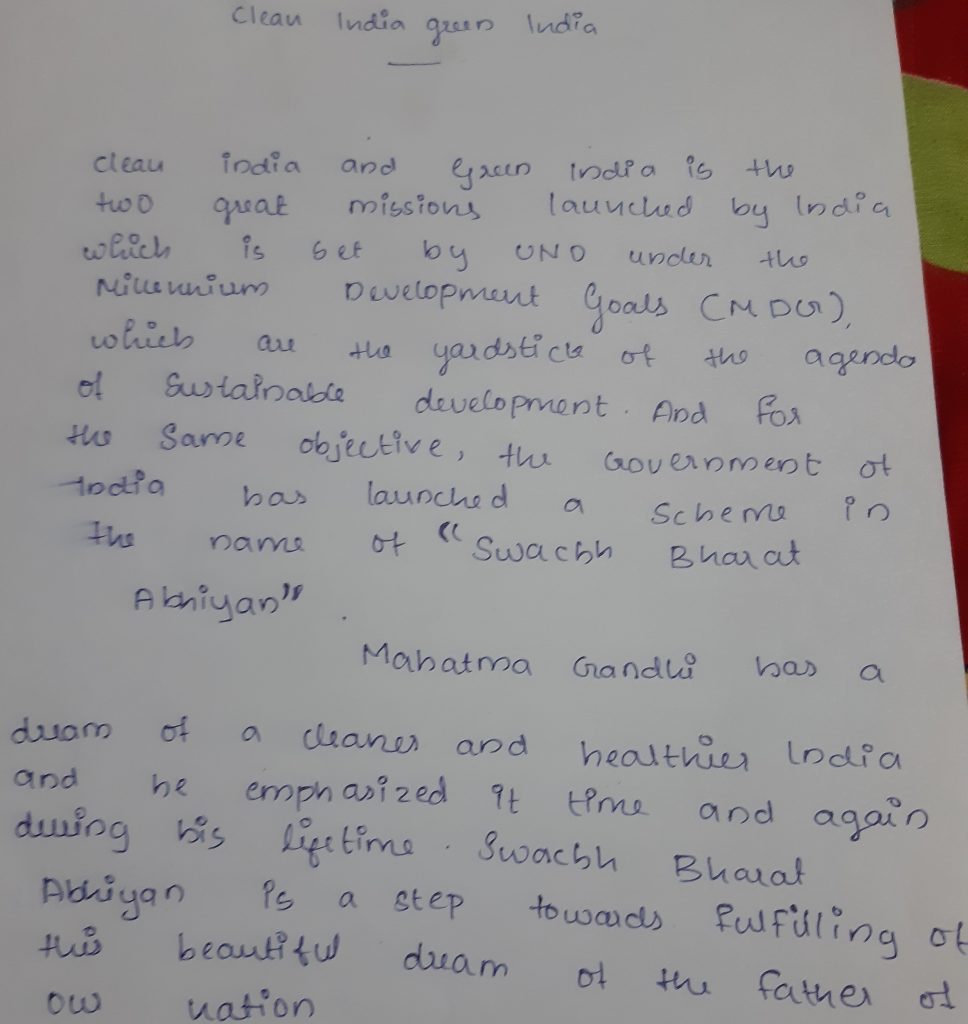 Clean India green India
Clean india and Green India is the
two great missions launched by India
which is set by UNO under the
Millennium Development Goals (MDG),
which are the yardstick of the agenda
of Sustainable development. And for
the Same objective, the Government of
India has launched a scheme in
the name of "Swachh Bharat
Abhiyan".
Mahatma Gandhi has a
dream of a cleaner and healthier India
and he emphasized it time and again
during his lifetime. Swachh Bharat
Abhiyan is a step towards fulfilling of
this beautiful dream of the father of
our nation